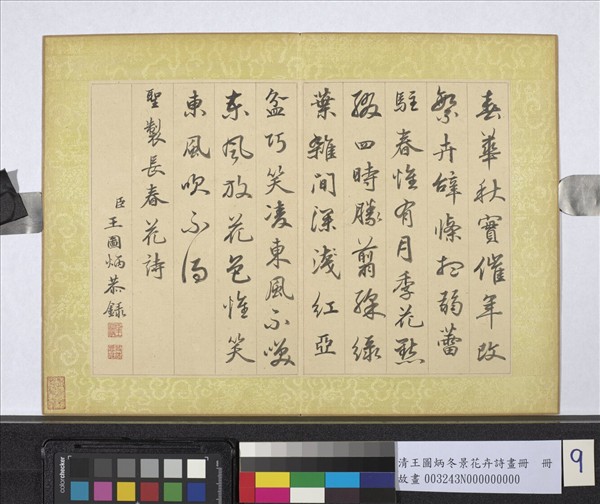 春華秋實催年改
繁卉辭條弱蕾
駐春惟有月季花點
綴四時勝翦綵綠
葉雜間深淺紅亞
盆巧笑凌東風不
東風放花色惟笑
東風吹不得
聖製長春花詩
臣王圖炳恭錄
清王圖炳冬景花卉詩畫冊 冊
故畫 003243N000000000
9
colorchecker